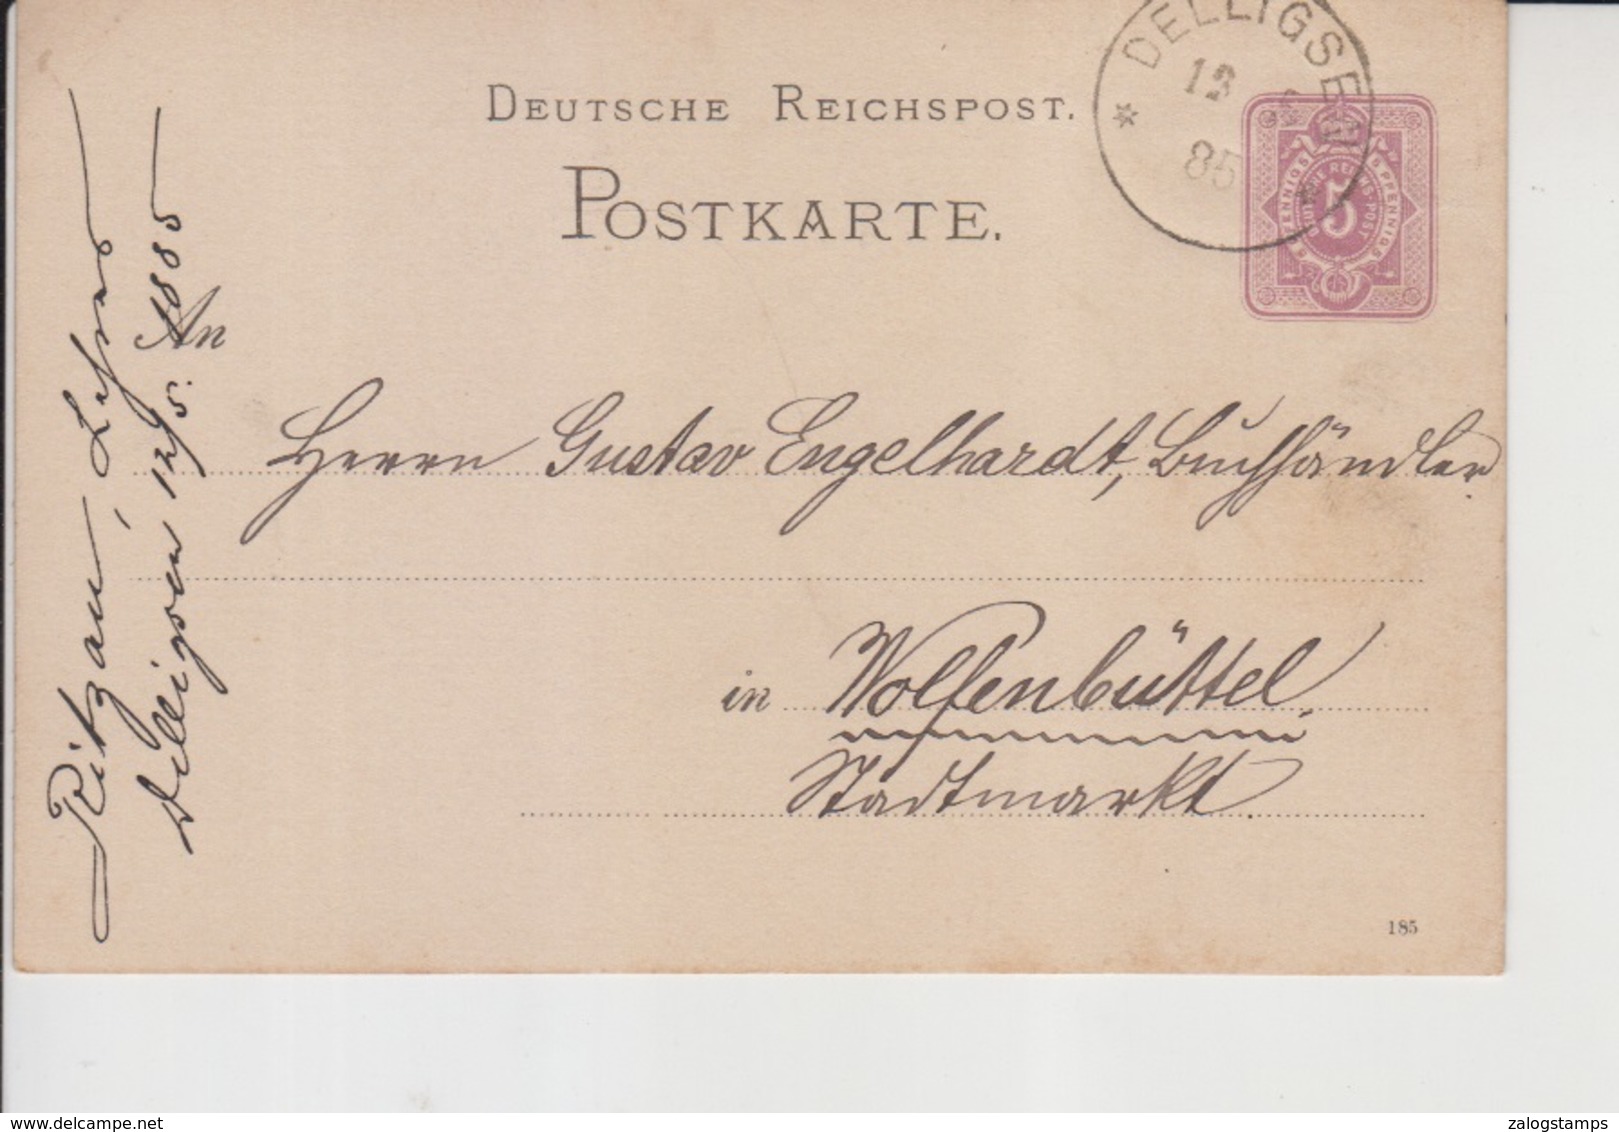 DELLIGSEN
12
5
85
DEUTSCHE REICHSPOST.
POSTKARTE.
5 PFENNIG 5 PFENNIG 5
DEUTSCHE REICHS-POST
5
An
Herrn Gustav Engelhardt, Buchhändler
in Wolfenbüttel.
Stadtmarkt.
185
Ritzau, Lehrer
Delligsen 12/5. 1885
www.delcampe.net
zalogstamps